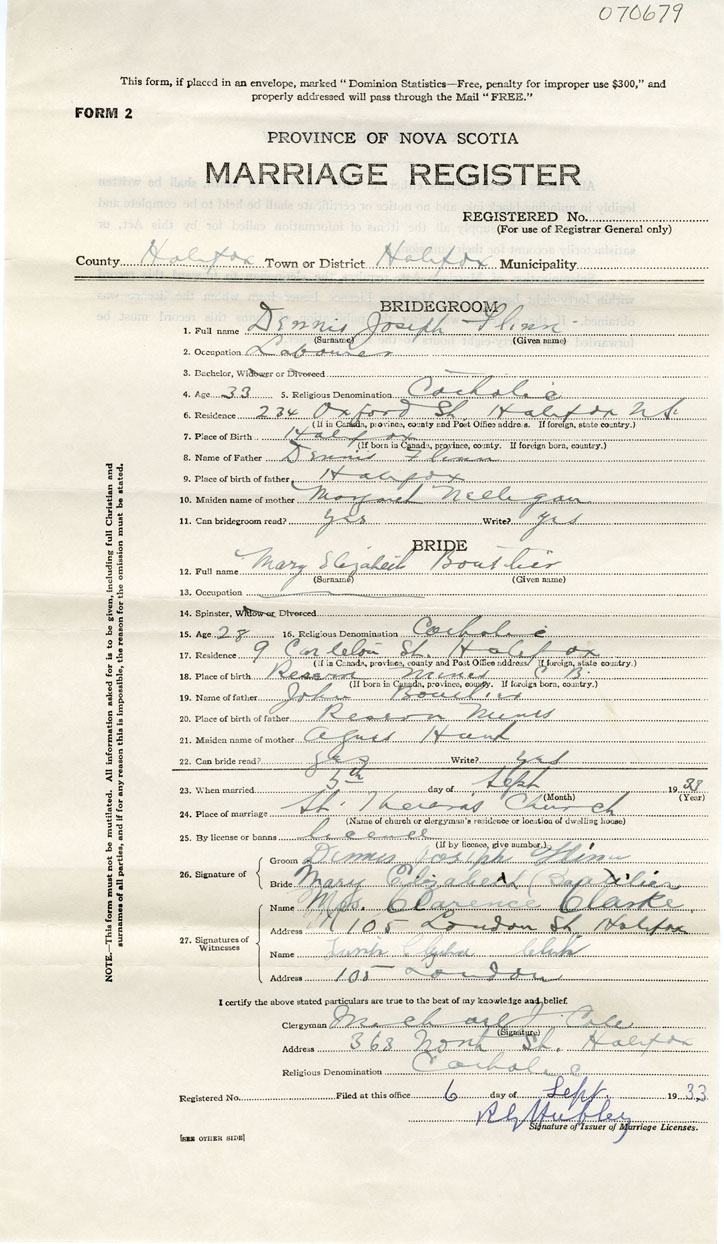 070679
This form, if placed in an envelope, marked “Dominion Statistics—Free, penalty for improper use $300,” and
properly addressed will pass through the Mail “FREE.”
FORM 2
PROVINCE OF NOVA SCOTIA
MARRIAGE REGISTER
REGISTERED No.
(For use of Registrar General only)
County Halifax Town or District Halifax Municipality
BRIDEGROOM
1. Full name Dennis Joseph Flinn
(Surname) (Given name)
2. Occupation Labourer
3. Bachelor, Widower or Divorced
4. Age 33 5. Religious Denomination Catholic
6. Residence 234 Oxford St. Halifax N.S.
(If in Canada, province, county and Post Office address. If foreign, state country.)
7. Place of Birth Halifax
(If born in Canada, province, county. If foreign born, country.)
8. Name of Father Dennis Flinn
9. Place of birth of father Halifax
10. Maiden name of mother Margaret Nelligan
11. Can bridegroom read? yes Write? yes
BRIDE
12. Full name Mary Elizabeth Boutilier
(Surname) (Given name)
13. Occupation
14. Spinster, Widow or Divorced
15. Age 28 16. Religious Denomination Catholic
17. Residence 9 Carleton St. Halifax
(If in Canada, province, county and Post Office address. If foreign, state country.)
18. Place of birth Reserve Mines C.B.
(If born in Canada, province, county. If foreign born, country.)
19. Name of father John Boutilier
20. Place of birth of father Reserve Mines
21. Maiden name of mother Agnes
22. Can bride read? yes Write? yes
23. When married 5th day of Sept 1933
(Month) (Year)
24. Place of marriage St. Theresa's Church
(Name of church or clergyman's residence or location of dwelling house)
25. By license or banns licence
(If by licence, give number.)
26. Signature of
Groom Dennis Joseph Flinn
Bride Mary Elizabeth Boutilier
27. Signatures of Witnesses
Name Mrs. Clarence Clarke
Address 105 London St Halifax
Name
Address 105 London
I certify the above stated particulars are true to the best of my knowledge and belief.
Clergyman Michael J. Cole
(Signature)
Address 368 North St. Halifax
Religious Denomination Catholic
Registered No. Filed at this office 6 day of Sept. 1933
Signature of Issuer of Marriage Licenses.
[SEE OTHER SIDE]
NOTE.—This form must not be mutilated. All information asked for is to be given, including full Christian and
surnames of all parties, and if for any reason this is impossible, the reason for the omission must be stated.